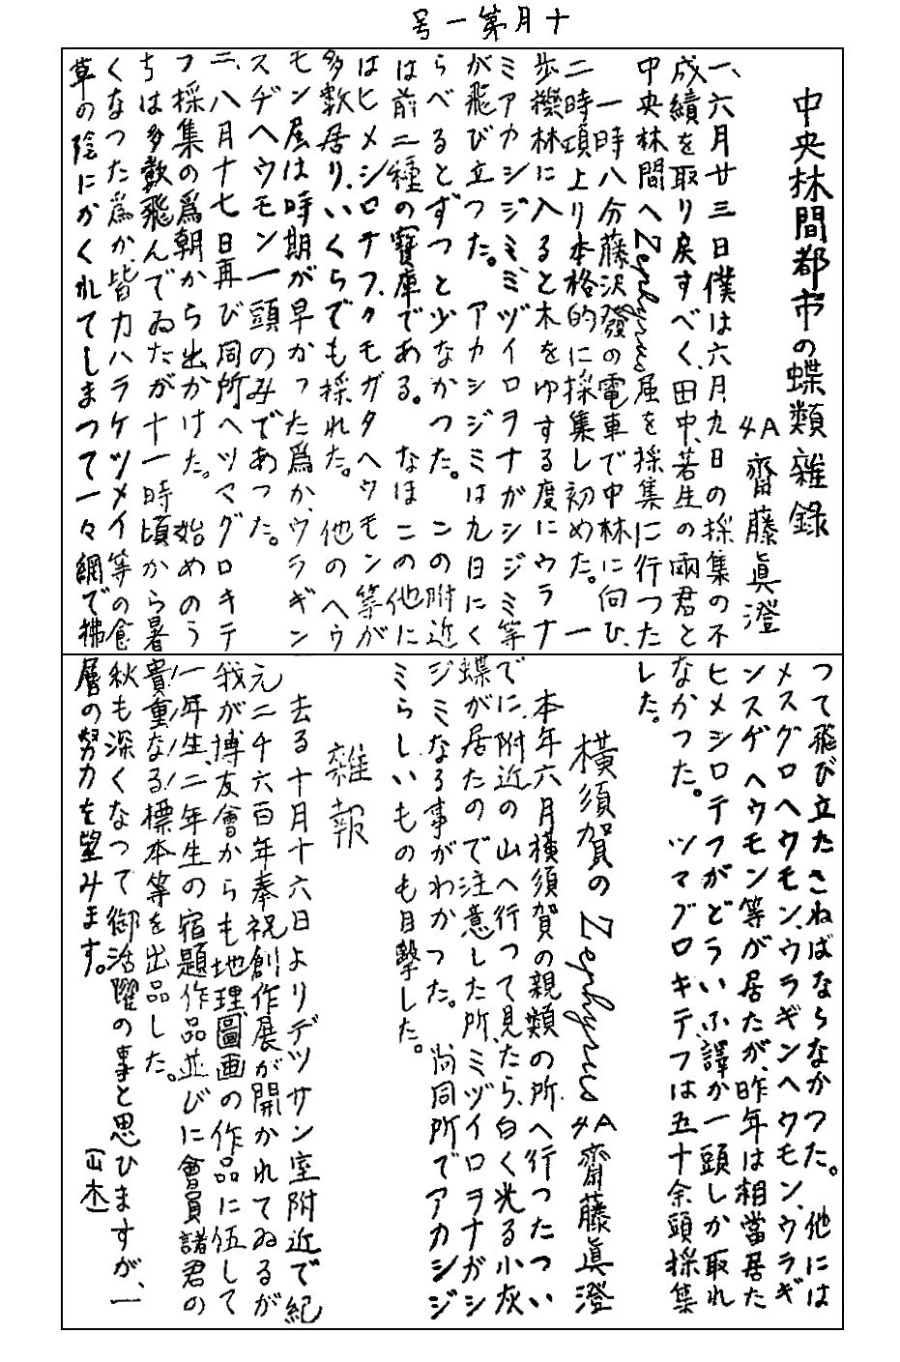 十月第一号
中央林間都市の蝶類雑録
4A 齋藤眞澄
一、六月廿三日僕は六月九日の採集の不
成績を取り戻すべく、田中、若生の両君と
中央林間へZephyrus属を採集に行つた
一時八分藤沢發の電車で中林に向ひ、
二時頃上り本格的に採集し初めた。一
歩櫟林に入ると木をゆする度にウラナ
ミアカシジミミヅイロヲナガシジミ等
が飛び立つた。アカシジミは九日にく
らべるとずつと少なかつた。この附近
は前二種の寶庫である。なほこの他に
はヒメシロテフ、クモガタヘウモン等が
多数居り、いくらでも採れた。他のヘウ
モン属は時期が早かつた爲か、ウラギン
スヂヘウモン一頭のみであつた。
二、八月十七日再び同所へツマグロキテ
フ採集の爲朝から出かけた。始めのう
ちは多數飛んでゐたが十一時頃から暑
くなつた爲か、皆カハラケツメイ等の食
草の陰にかくれてしまつて一々網で拂
つて飛び立たさねばならなかつた。他には
メスグロヘウモン、ウラギンヘウモン、ウラギ
ンスヂヘウモン等が居たが、昨年は相當居た
ヒメシロテフがどういふ譯か一頭しか取れ
なかつた。ツマグロキテフは五十余頭採集
した。
橫須賀のZephyrus 4A 齋藤眞澄
本年六月橫須賀の親類の所へ行つたつい
でに、附近の山へ行つて見たら、白く光る小灰
蝶が居たので注意した所、ミヅイロヲナガシ
ジミなる事がわかつた。尚同所でアカシジ
ミらしいものも目撃した。
雑報
去る十月十六日よりデツサン室附近で紀
元二千六百年奉祝創作展が開かれてゐるが
我が博友會からも地理圖画の作品に伍して
一年生、二年生の宿題作品並びに會員諸君の
貴重なる標本等を出品した。
秋も深くなつて御活躍の事と思ひますが、一
層の努力を望みます。（山木）